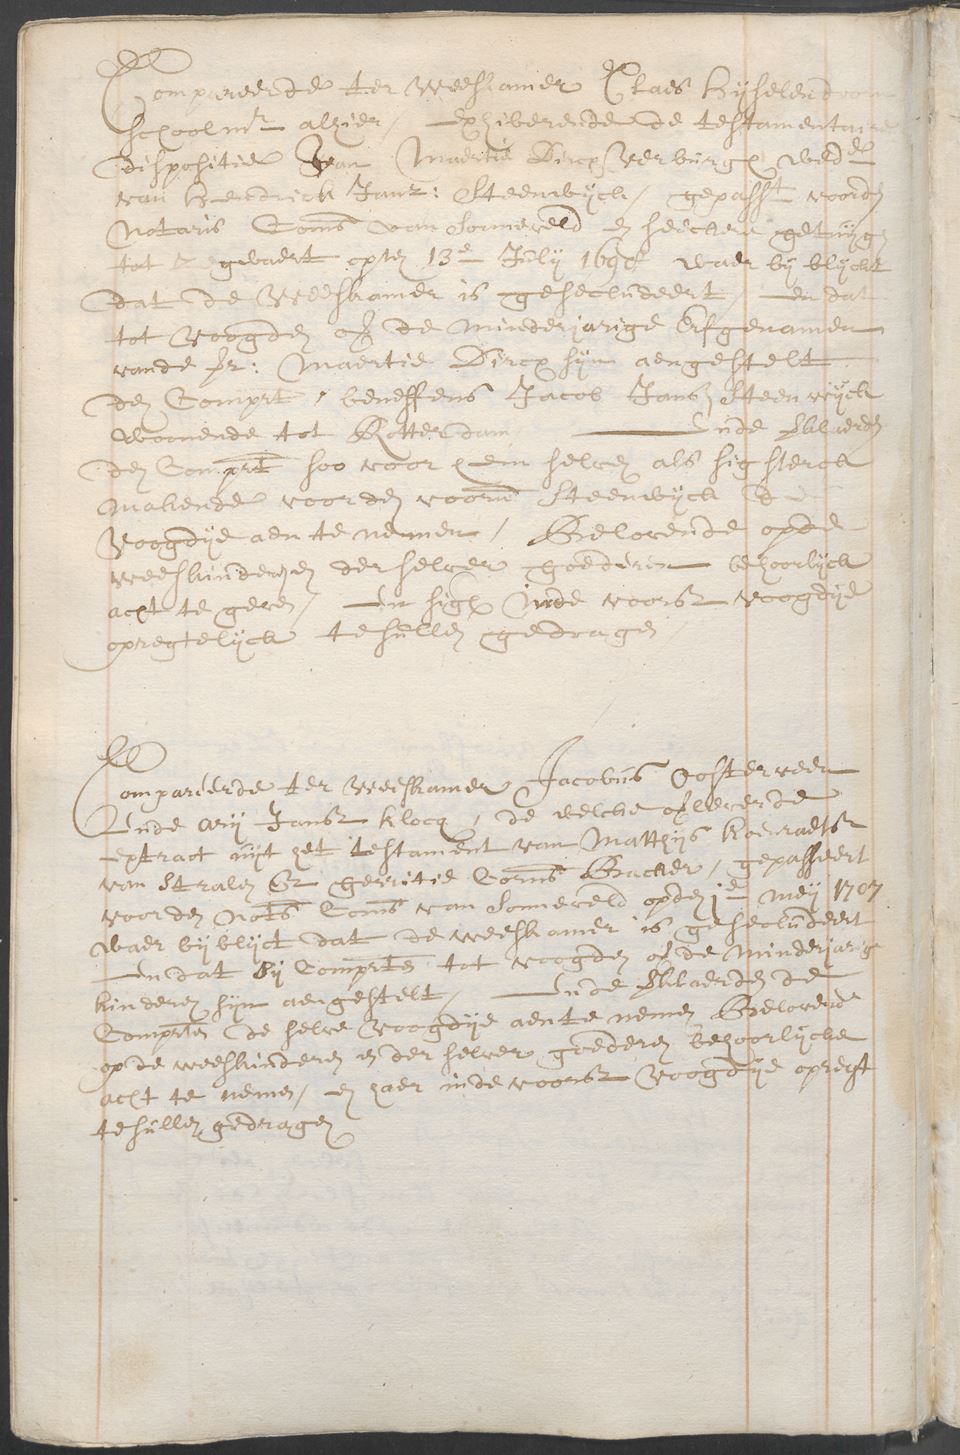 Compareerde ter weeskamer Claes Kijselendoorn
schoolmr alhier, exhiberende de testamentaire
dispositie van Maertie Dircx Verburgh wede
van Hendrick Janz: Steenwijck, gepasst voorden
notaris Corns van Sonneveld en seeckere getuijgen
tot Zegwaert opten 13e Julij waer bij blijckt
dat de weeskamer is geseclundeert, en dat
tot voogden of de minderjarige Erfgenamen
vande fr: Maertie Dircx sijn aengestelt
den Comprt, beneffens Jacob Jansz Steenwijck
woonende tot Rotterdam Ende Verklaerden
den Comprt soo voor hem selven als sig sterck
makende voorden voorn Steenwijck de
voogdije aen te nemen, Belovende opde
weeskinderen en derselver goederen behoorlijck
acht te geven, En sigh inde voorsz voogdije
opregtelijck te sullen gedragen
Compareerde ter weeskamer Jacobus Oosterveen
Ende Arij Jansz Klocq, de welcke ofleverde
extract uijt het testament van Matthijs Koenraetsz
van Stralen Er gerritie Corns Backer, gepasseert
voorden Nots Corns van Sonneveld opden je Meij 1707
waer bij blijct dat de weeskamer is geseclundeert
En dat sij Comprten tot voogden of de minderjarige
kinderen sijn aengestelt, Ende Verklaerden de
Comprten de selve voogdije aente nemen Belovende
op de weeskinderen en derselver goederen behoorlijcke
acht te nemen, en haer inde voorsz voogdije opregt
te sullen gedragen